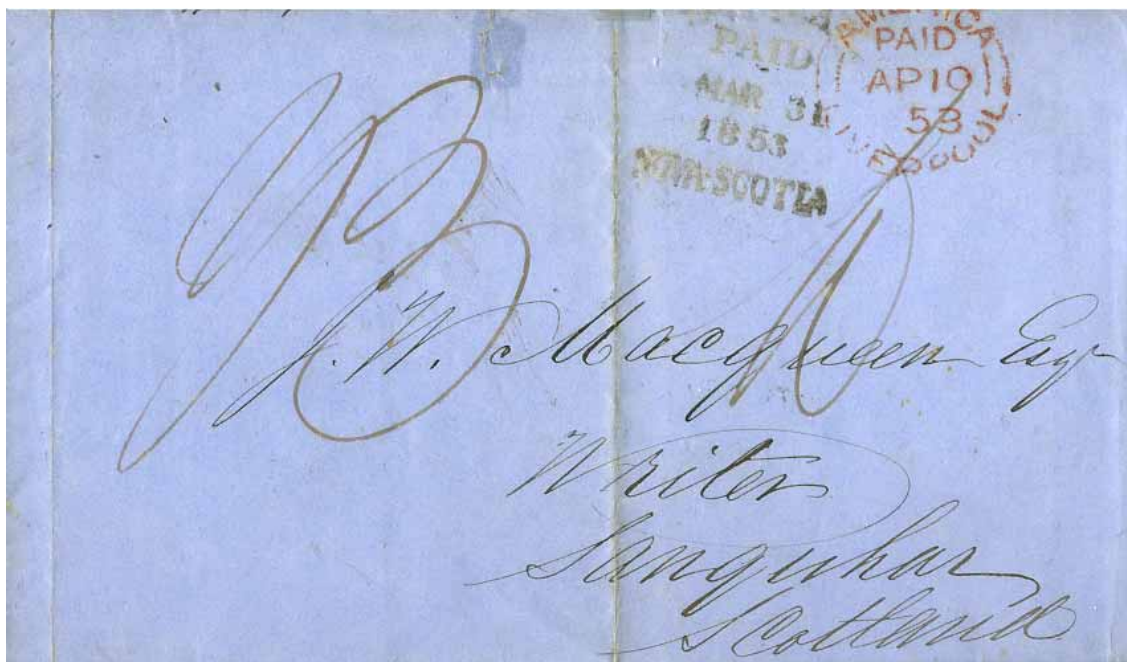 PAID
MAR 31
1853
NOVA-SCOTIA
AMERICA
PAID
AP 10
53
LIVERPOOL
J. W. Macqueen Esqr
Writer
Sanquhar
Scotland